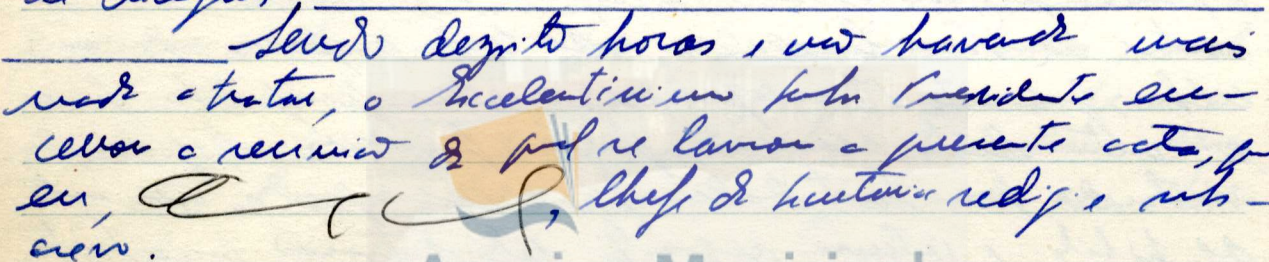 Sendo dezoito horas e não havendo mais
nada a tratar, o Excelentissimo Senhor Presidente en-
cerrou a reunião da qual se lavrou a presente acta, que
eu, , Chefe da Secretaria redigi e subs-
crevo.